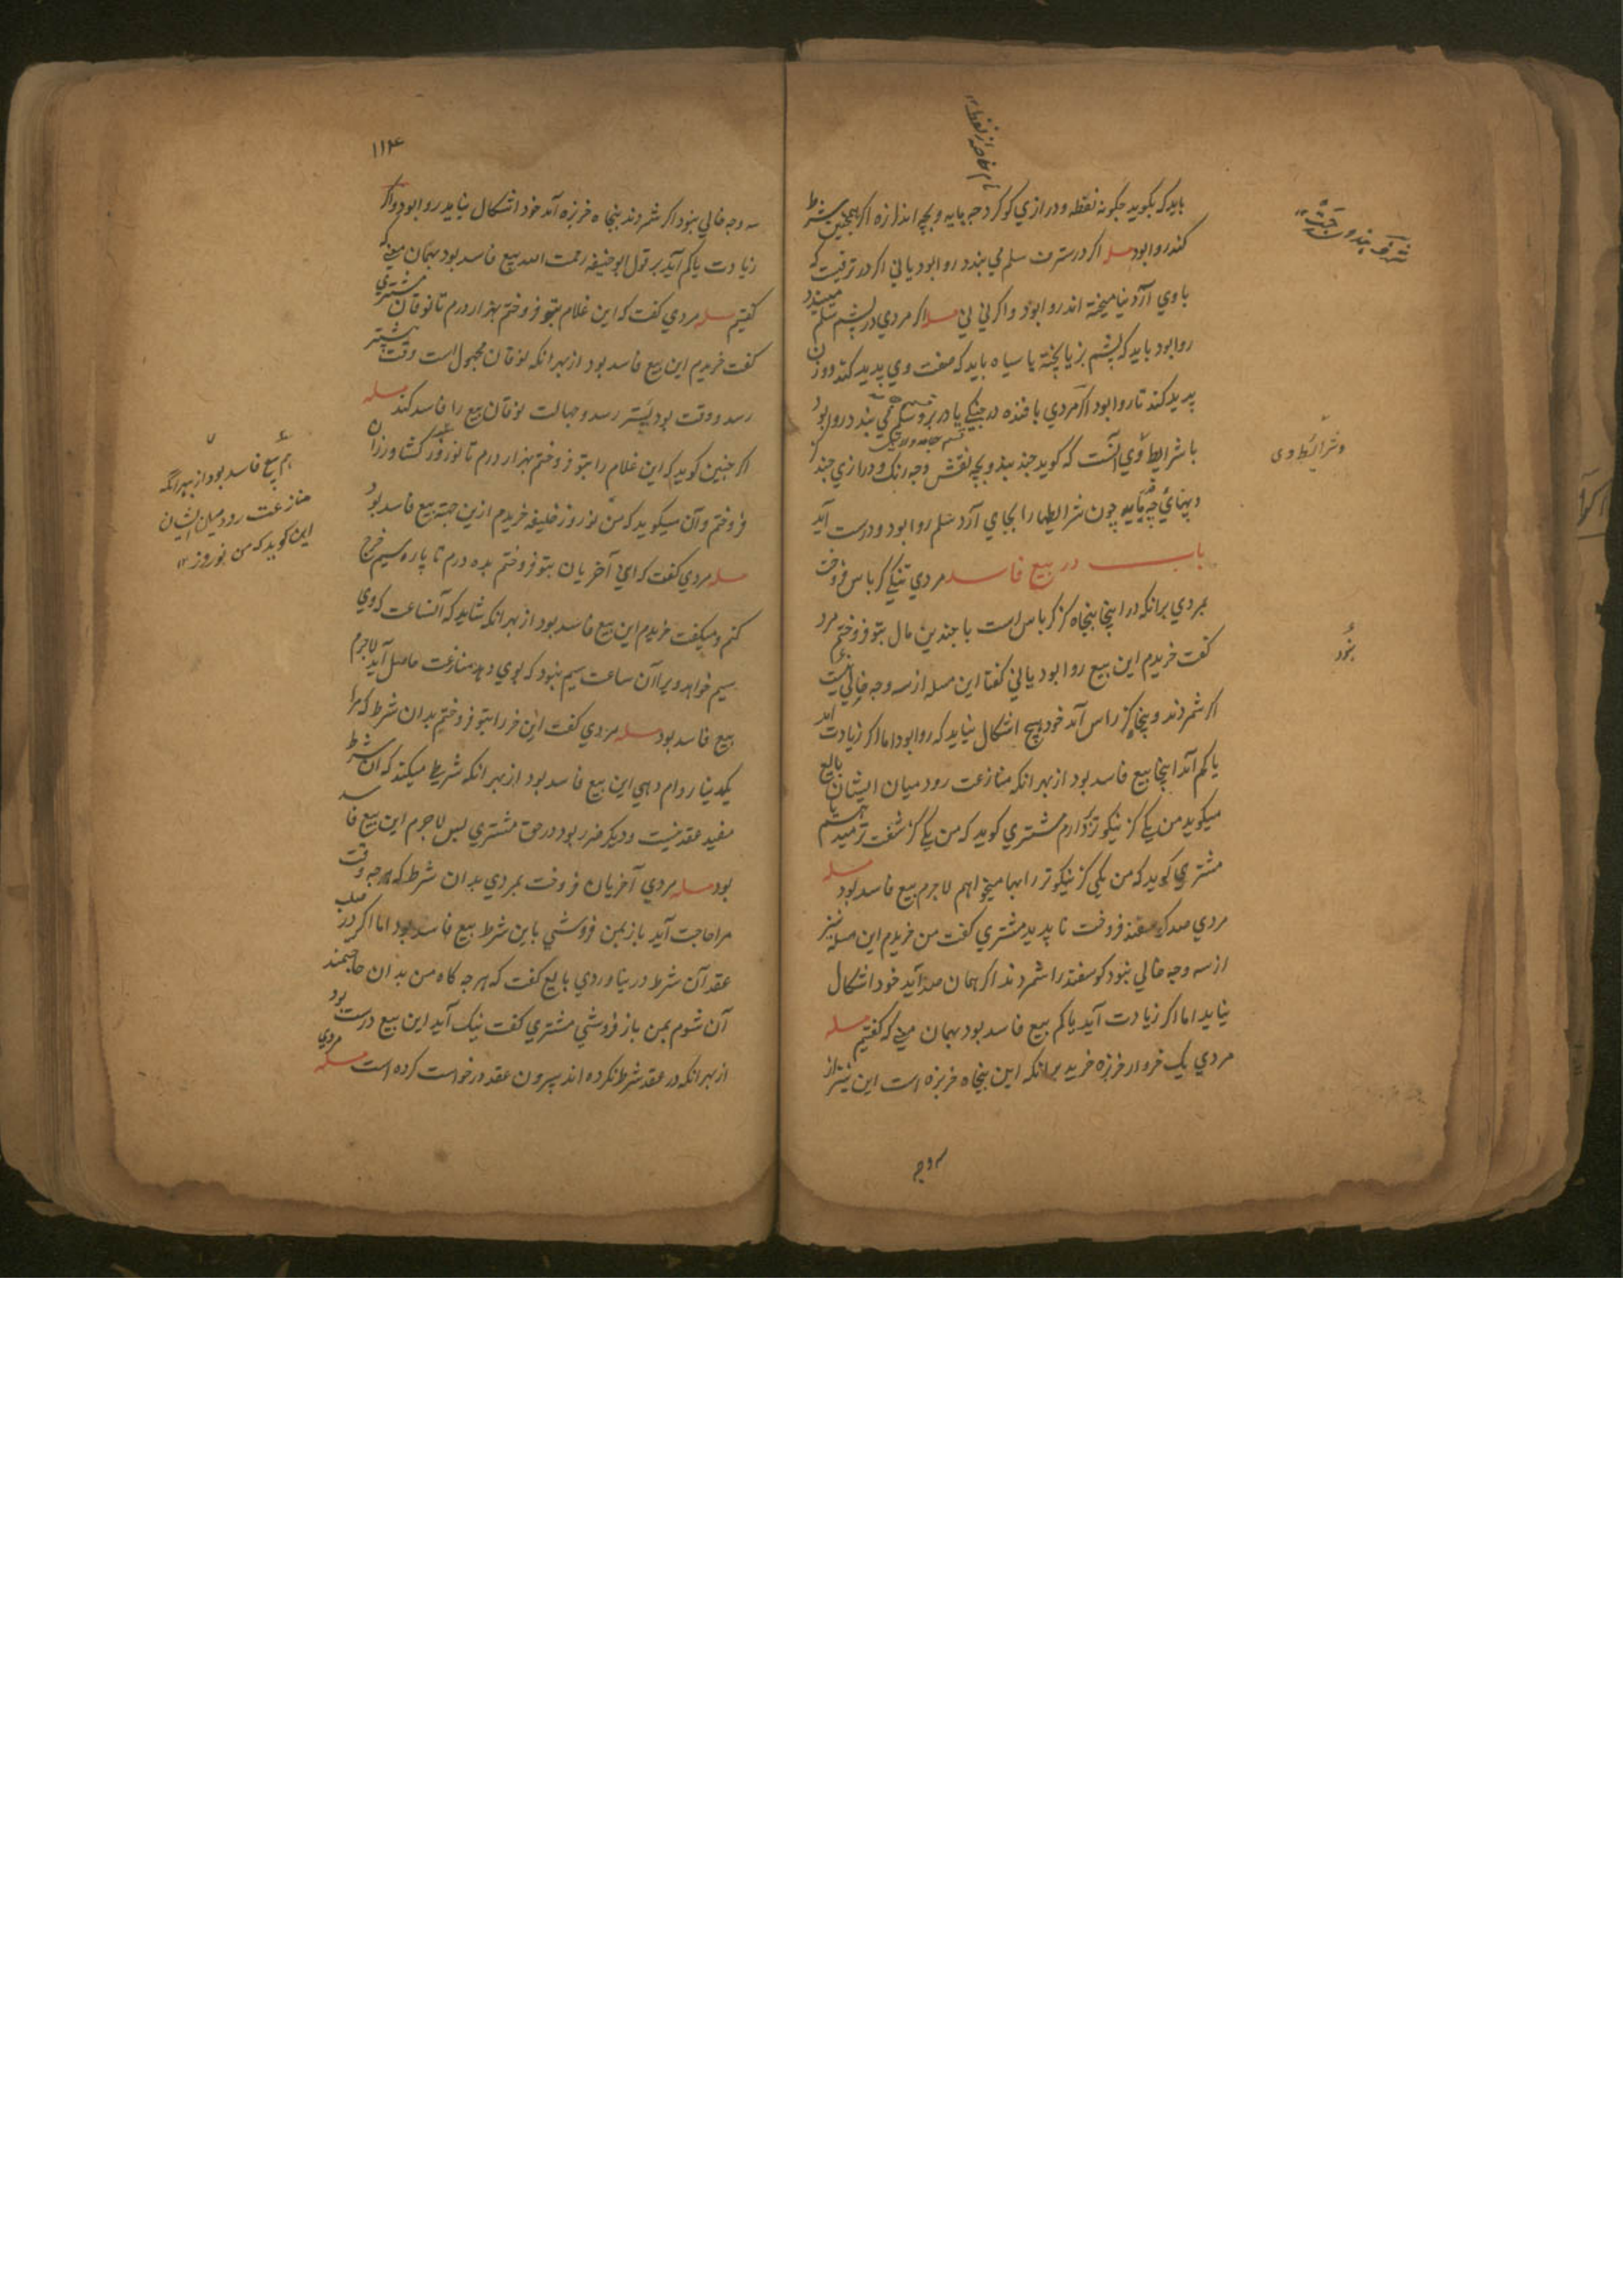 باید که بکوید جکونه نقطه و درازي کو کرد جه پایه و بچه اندازه اکر همجنین شرط
کند روا بود مسله اکر در سترف سلم می بندد روا بود یا ني اکر در ترفیت که
با وي آرد نیامیخته اند روا بود واکر ني ني مسله اکر مردي در پشم سلم میبندد
روا بود باید که پشم بز یا پخته یا سیاه باید که صفت وي پدید کند و وزن
پدید کند تا روا بود اکر مردي بافنده در یا در سلم می بندد روا بود
با شرایط وي آنست که کوید جند بند و بچه نقش و جه رنک و درازي جند کز
و پهنائي چه پایه چون شرایطها را بجاي آرد سلم روا بود و درست آید
باب در بیع فاسد مردي تنکي کرباس فروخت
بمردي برانکه در اینجا پنجاه کز کرباس است با جندین مال بتو فروختم مرد
کفت خریدم این بیع روا بود یا ني کفتا این مسله از سه وجه خالي نیست
اکر شمردند و پنجاه کز راس آمد خود هیچ اشکال نیاید که روا بود اما اکر زیادت آمد
یا کم آمد اینجا بیع فاسد بود از بهر انکه منازعت رود میان ایشان بایع
میکوید من یک کز نیکوتر دارم مشتري کوید که من یک کز
مشتري کوید که من یکي کز نیکوتر را بها میخواهم لاجرم بیع فاسد بود مسله
مردي صد کوسفند فروخت تا پدید مشتري کفت من خریدم این مسله نیز
از سه وجه خالي نبود کوسفند را شمردند اکر همان صد آید خود اشکال
نیاید اما اکر زیادت آید یا کم بیع فاسد بود بهمان معني که کفتیم مسله
مردي یک خروار خربزه خرید برانکه این پنجاه خربزه است این نیز از
سه وجه
وشرایط وی
نبود
۱۱۴
سه وجه خالي نبود اکر شمردند پنجاه خربزه آمد خود اشکال نیاید روا بود واکر
زیادت یا کم آید بر قول ابوحنیفه رحمت الله بیع فاسد بود بهمان معني که
کفتیم مسله مردي کفت که این غلام بتو فروختم بهزار درم تا نوقان مشتري
کفت خریدم این بیع فاسد بود از بهر انکه نوقان مجهول است وقت پیشتر
رسد و وقت بود پستر رسد و جهالت نوقان بیع را فاسد کند مسله
اکر جنین کوید که این غلام را بتو فروختم بهزار درم تا نوروز کشاورزان
فروختم و آن میکوید که من نوروز خلیفه خریدم ازین جهت بیع فاسد بود
مسله مردي کفت که این آخریان بتو فروختم بده درم تا پاره سیم خرج
کنم و میکفت خریدم این بیع فاسد بود از بهر انکه شاید که آنساعت که وي
سیم خواهد ویرا آن ساعت سیم نبود که بوي دهد منازعت حاصل آید لاجرم
بیع فاسد بود مسله مردي کفت این خر را بتو فروختم بدان شرط که مرا
یکدینار وام دهي این بیع فاسد بود از بهر انکه شریطه میکند که آن شرط
مفید عقد نیست و دیکر ضرر بود در حق مشتري پس لاجرم این بیع فاسد
بود مسله مردي آخریان فروخت بمردي بدان شرط که هر جه وقت
مرا حاجت آید باز بمن فروشي باین شرط بیع فاسد بود اما اکر در صلب
عقد آن شرط در نیاوردي بایع کفت که هر جه کاه من بدان حاجتمند
آن شوم بمن باز فروشي مشتري کفت نیک آید این بیع درست بود
از بهر انکه در عقد شرط نکرده اند بیرون عقد درخواست کرده است مسله مردي
هم بیع فاسد بود از بهر انکه
منازعت رود میان ایشان
این کوید که من نوروز ۱۲